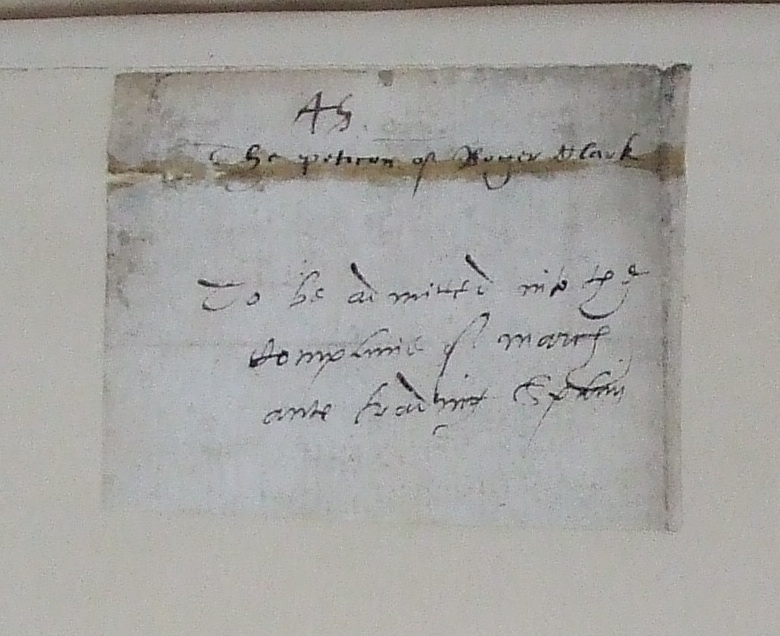 45
The peticon of Roger Clark
To be admitted into the
Companie of march
ante trading Spain